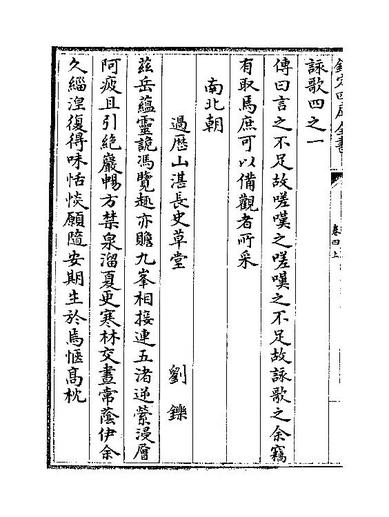 欽定四庫全書
卷四上
詠歌四之一
傳曰言之不足故嗟嘆之嗟嘆之不足故詠歌之余竊
有取焉庶可以備觀者所采
南北朝
過歴山湛長史草堂 劉鑠
茲岳蘊靈詭馮覽趣亦贍九峯相接連五渚逆縈浸層
阿疲且引絶巖暢方禁泉溜夏更寒林交晝常蔭伊余
久緇涅復得味恬惔願隨安期生於焉愜髙枕